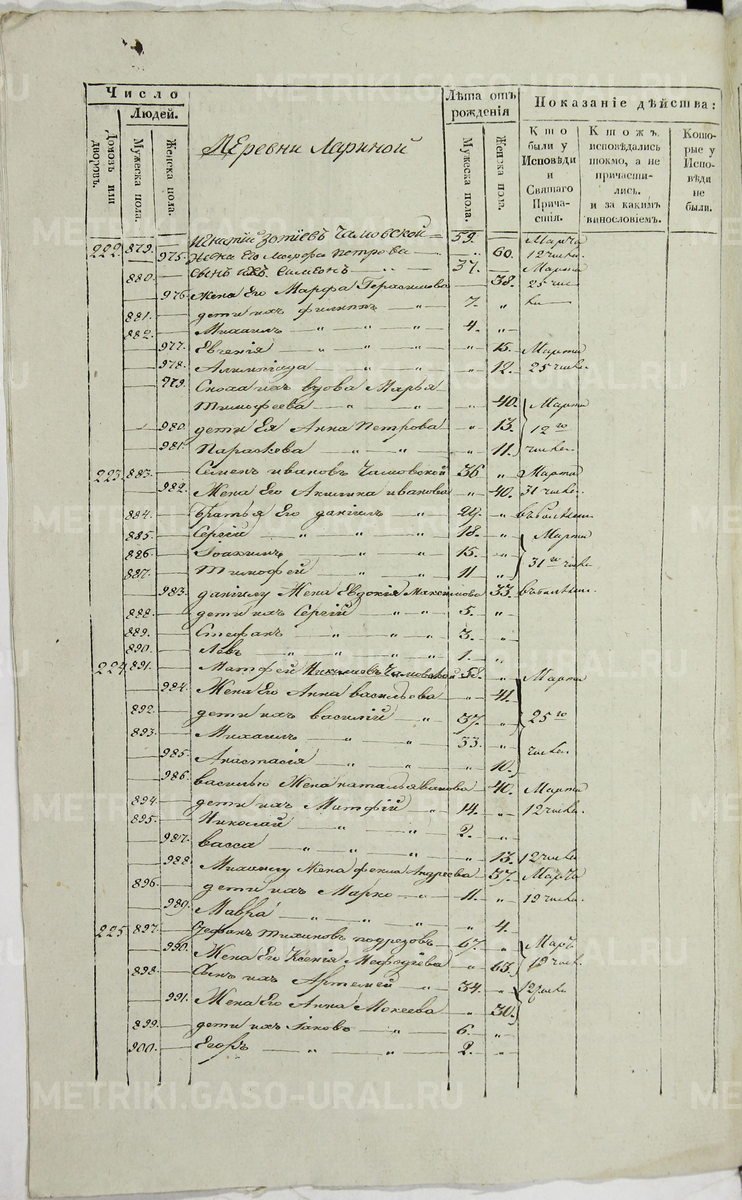 Число
Людей.
Домовъ или дворовъ.
Мужеска пола.
Женска пола.
Лѣта отъ рожденія
Мужеска пола.
Женска пола.
Показаніе дѣйства:
Кто были у Исповѣди и Святаго Причастія.
Кто жъ исповѣдались токмо, а не причастились. и за какимъ винословіемъ.
Которые у Исповѣди не были.
Деревни Лариной
222. 879. Зотіевъ 59. Марта
975. Жена Его Марфа Петрова 60. 12 числа
880. Сынъ ихъ Симеонъ 37. Марта
976. Жена Его Марфа Герасимова 38. 25 чис
881. дети ихъ Филиппъ 7. " ла
882. Михаилъ " " " 4. "
977. Евгенія " " " " 15. Марта
978. " " " 12. 25 числа
979. Сноха ихъ вдова Марья
Тимофеева " " 40. Марта
980. дети Ея Анна Петрова " 13. 12го
981. Параскева " " " 11. числа
223. 883. Семенъ Ивановъ 36 " Марта
982. Жена Его Ивановна " 40. 31 числа
884. братья Его Даніилъ " 29. "
885. Сергій " " " 18. " Марта
886. Іоакимъ " " 15. "
887. Тимофей " " 11 " 31го числа
983. Даніилу Жена Евдокія Максимова 33.
888. дети ихъ Сергій " " 5. "
889. Стефанъ " " " 3. "
890. Левъ " " " " 1. "
224. 891. Матфей 58. " Марта
984. Жена Его Анна Васильева " 41.
892. дети ихъ Василій " 37. " 25го
893. Михаилъ " " 33. "
985. Анастасія " " " " 10. числа
986. Василью Жена Наталья Иванова 40. Марта
894. дети ихъ Матфій " 14. " 12 числа
895. Николай " " 2. "
987. Васса " " " " 13. 12 числа
988. Михаилу Жена Андреева 37. Марта
896. дети ихъ Марко " 11. " 12 числа
989. Мавра " " " " 4.
225. 897. Стефанъ Тихоновъ Подрезовъ 67. " Мар
990. Жена Его Ксенія Мефодіева " 63. 12 числ
898. Сынъ ихъ Артемей " 34. " 12 числа
991. Жена Его Анна Мокеева " 30.
899. дети ихъ Іаковъ " 6. "
900. Егоръ " " " 2. "
METRIKI.GASO-URAL.RU